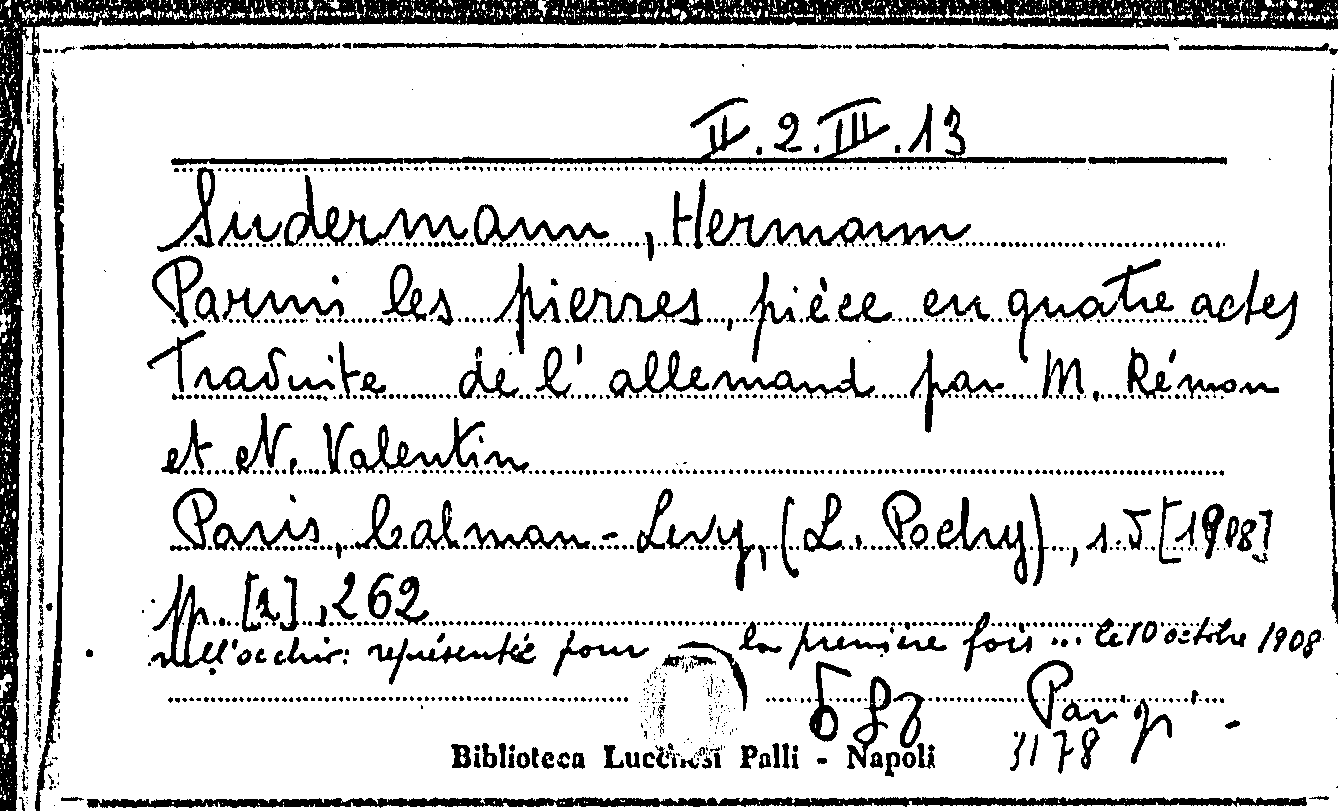 II.2.III.13
Sudermann, Hermann
Parmi les pierres, pièce en quatre actes
Traduite de l'allemand par M. Rémon
et N. Valentin
Paris, Calman-Levy, (L. Pochy), s.d [1908]
pp. [2], 262
nell'occhio: représentée pour la première fois ... le 10 octobre 1908
Parigi
3178
Biblioteca Lucchesi Palli - Napoli